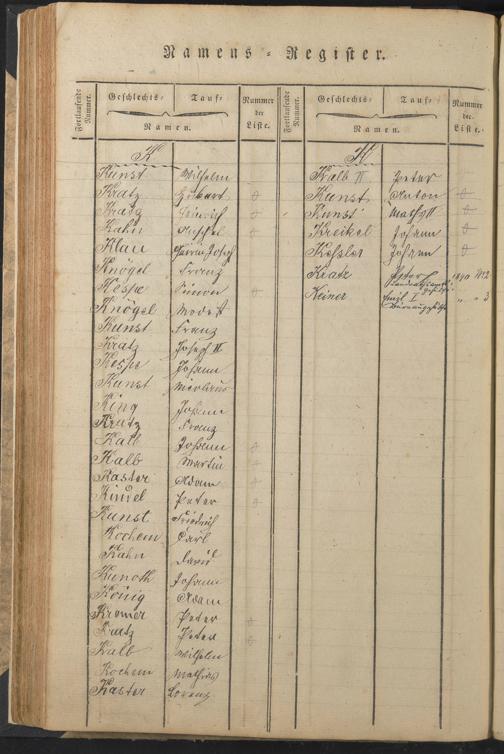 Namens-Register.
Fortlaufende Nummer.
Geschlechts-
Tauf-
Namen.
Nummer der Liste.
K
Kunst Wilhelm
Kratz Hubert
Kratz Heinrich
Kahn Anschel
Klau Johann Joseph
Knögel Franz
Kespe Simon
Knögel Modest
Kunst Franz
Kratz Joseph II
Kespe Johann
Kunst Nicolaus
King Johann
Kratz Franz
Kalb Johann
Kalb Martin
Kaster Adam
Kindel Peter
Kunst Friedrich
Kochem Carl
Kahn David
Kunoth Johann
König Adam
Kremer Peter
Kratz Peter
Kalb Wilhelm
Kochem Mathias
Kaster Lorenz
Fortlaufende Nummer.
Geschlechts-
Tauf-
Namen.
Nummer der Liste.
K
Kalb II Peter
Kunst Anton
Kunst Mathias II
Kreikel Johann
Kessler Johann
Kratz Peter 1890 N12
Keiner " " 3